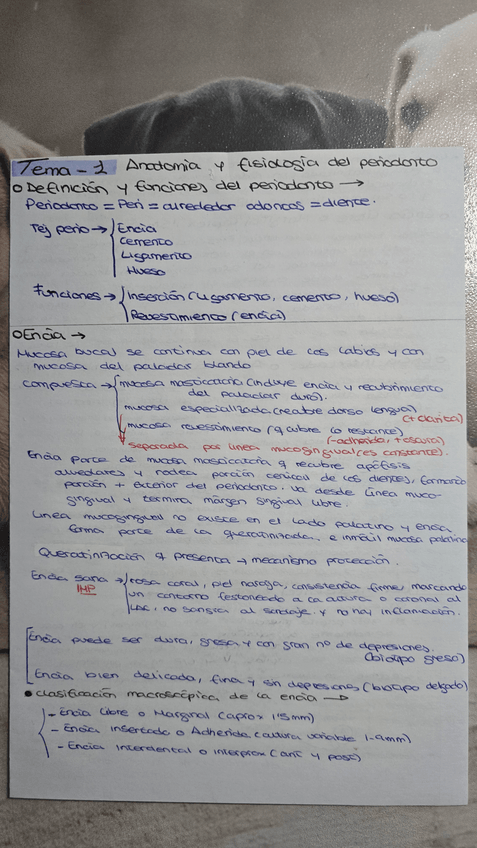 Tema - 1 Anatomia y fisiología del periodonto
Definición y funciones del periodonto →
Periodonto = Peri = alrededor odontos = diente.
Tej perio → Encia
Cemento
Ligamento
Hueso
Funciones → Inserción (ligamento, cemento, hueso)
Revestimiento (encia)
Encia →
Mucosa bucal se continua con piel de los labios y con
mucosa del paladar blando
compuesta → mucosa masticatoria (incluye encia y recubrimiento
del paladar duro).
mucosa especializada (recubre dorso lengua)
(+ clarita)
mucosa revestimiento (q cubre lo restante)
(-adherida, + oscura)
separada por linea mucogingival (es constante).
Encia parte de mucosa masticatoria q recubre apófisis
alveolares y rodea porción cervical de los dientes, formando
porción + exterior del periodonto. Va desde linea muco-
gingual y termina márgen gingival libre.
Linea mucogingival no existe en el lado palatino y encia
forma parte de la queratinizada, e inmóvil mucosa palatina
Queratinización q presenta → mecanismo protección.
Encia sana → rosa coral, piel naranja, consistencia firme, marcando
IMP
un contorno festoneado a la altura o coronal al
LAC, no sangra al sondaje y no hay inflamación.
Encia puede ser dura, gruesa y con gran nº de depresiones.
(biotipo grueso)
Encia bien delicada, fina y sin depresiones (biotipo delgado)
clasificación macroscópica de la encia →
- Encia Libre o Marginal (aprox 1'5mm)
- Encia insertada o Adherida (altura variable 1-9mm)
- Encia interdental o interprox (ant y post)